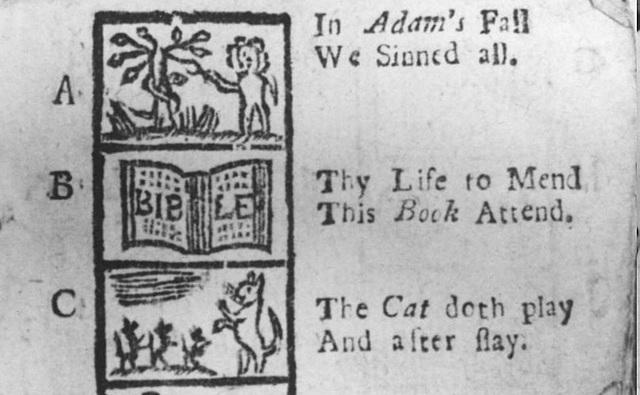 In Adam's Fall
We Sinned all.
A
Thy Life to Mend
This Book Attend.
B
BIBLE
The Cat doth play
And after slay.
C